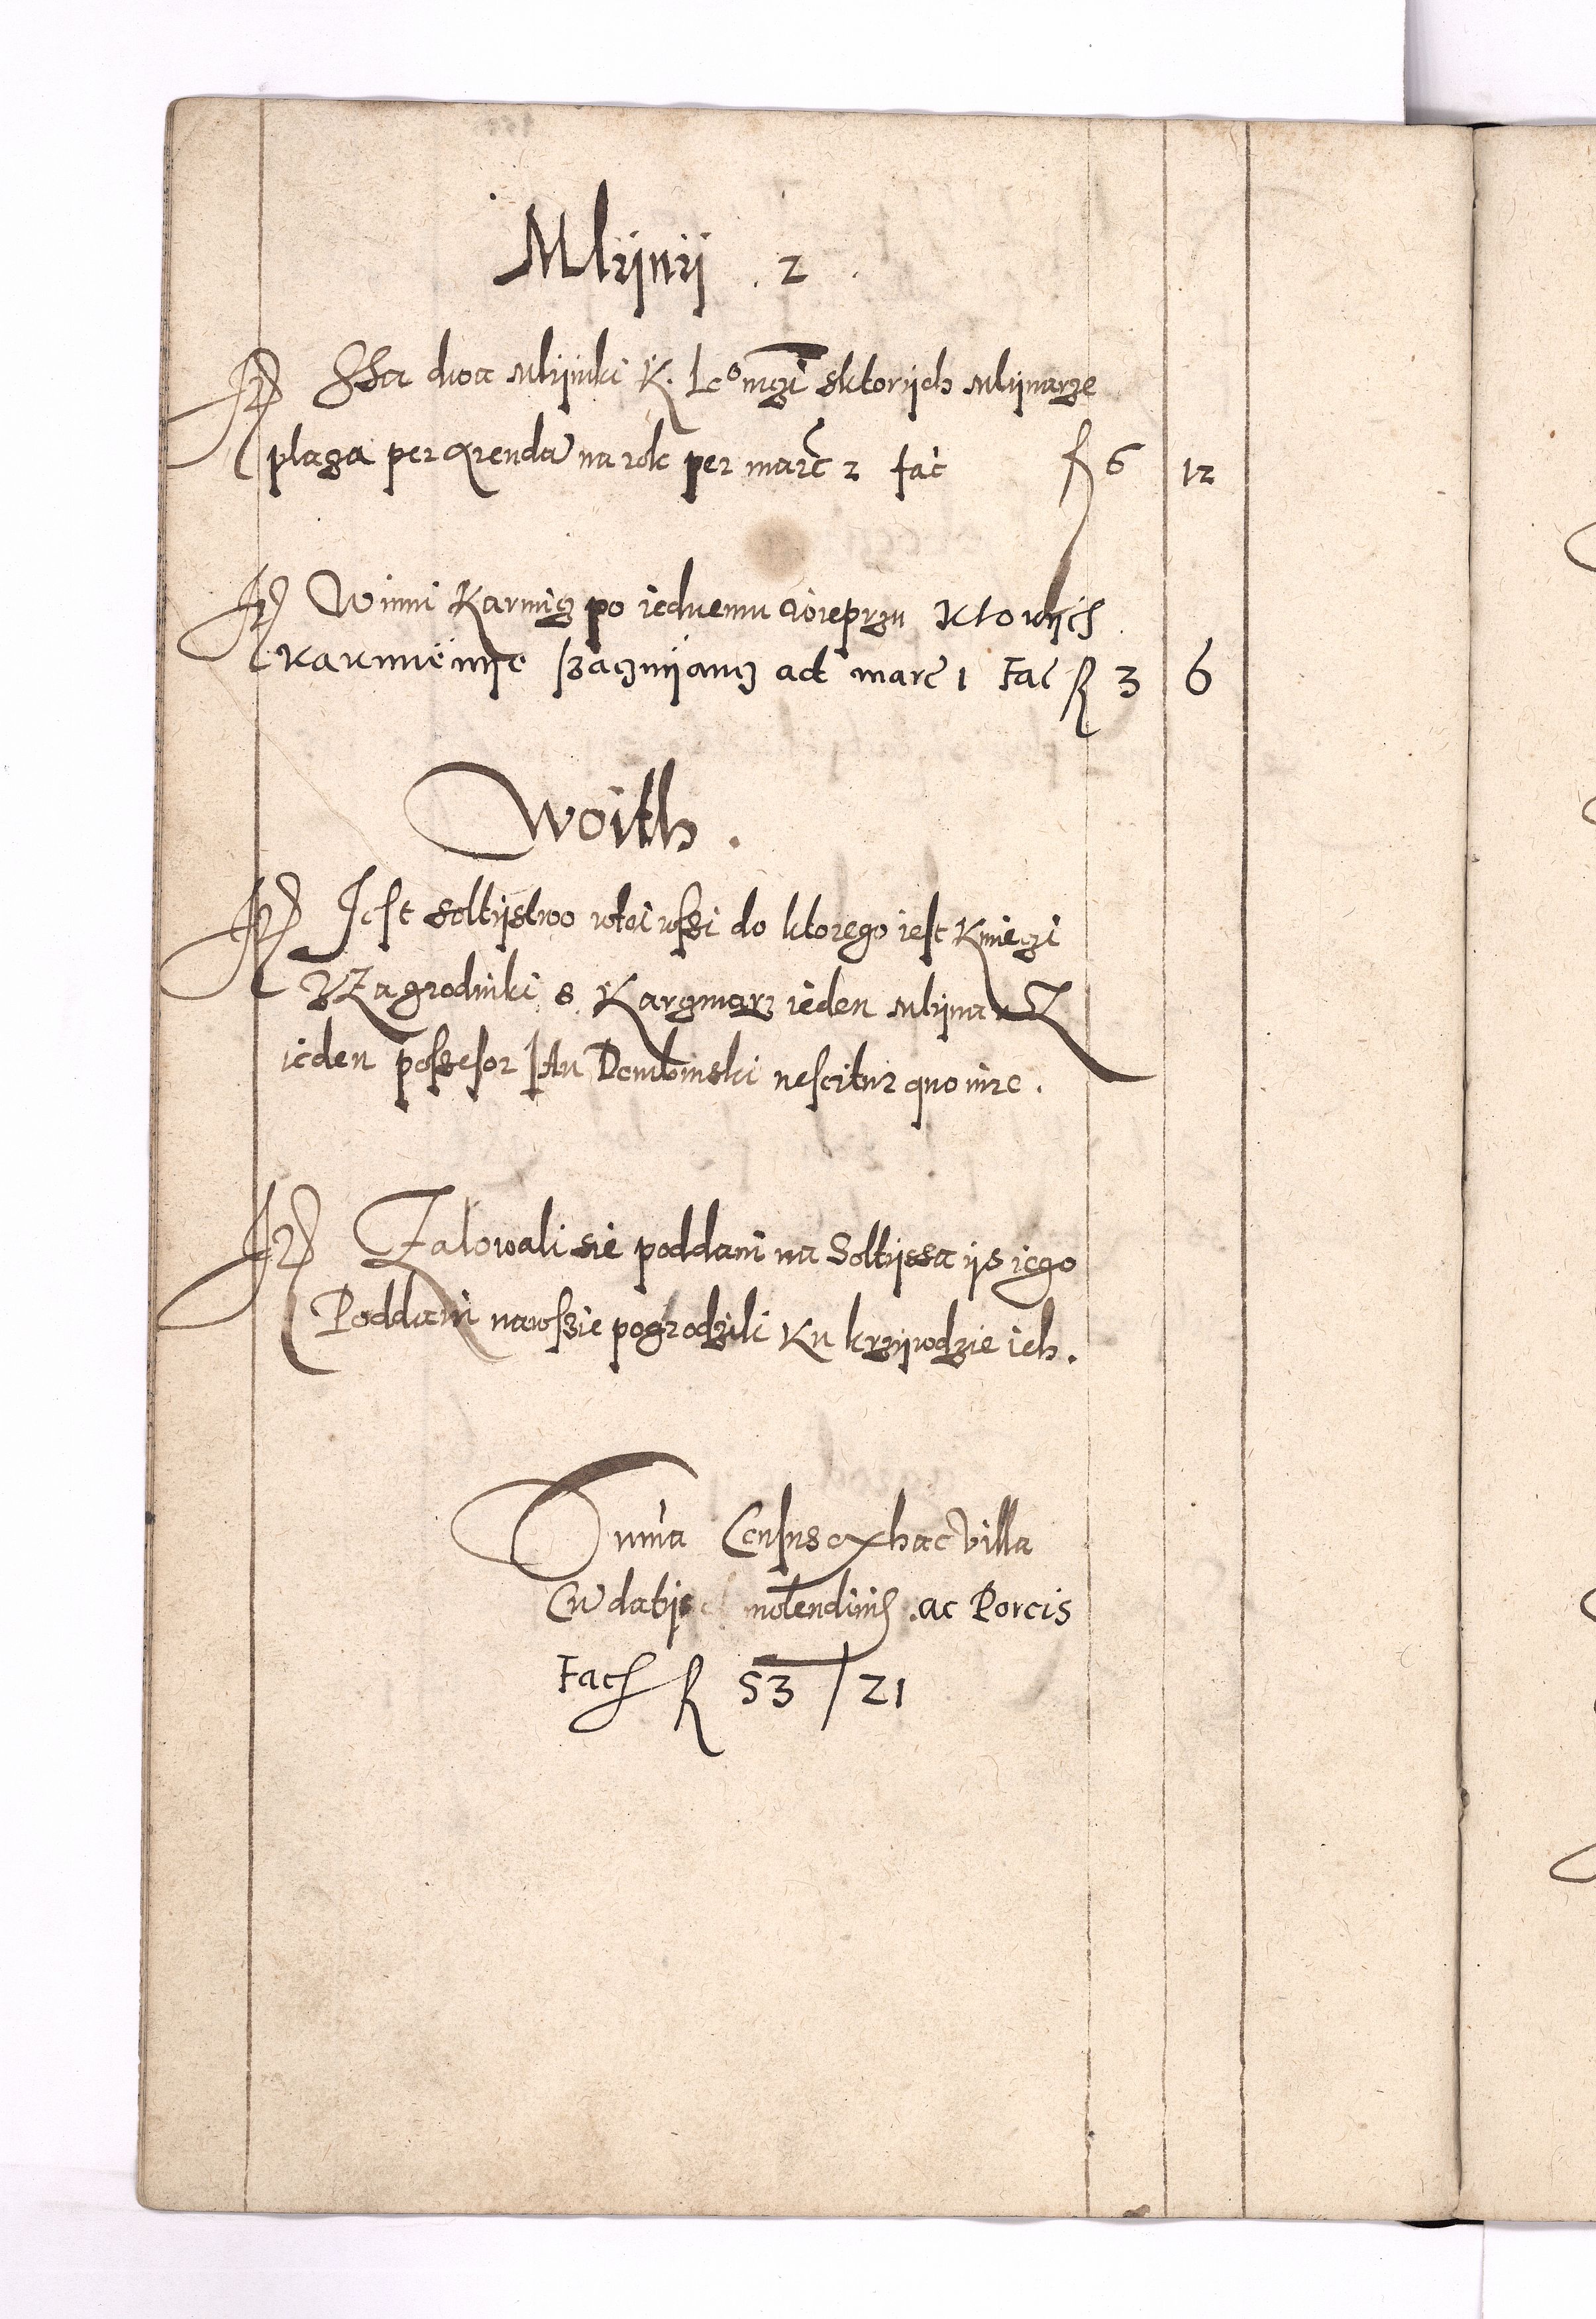 Mlijnij . 2 .
It Ssa dwa mlijnki K. Lomzi sktorijch mlijnarze
plaza per arenda na rok per marc 2 fac f 6 12
It Winni Karmiz po iednemu wieprzu Ktorijch
karmienije szaczuijanij ad marc 1 Fac f 3 6
Woith .
It Jest soltijstwo wtei wssi do ktorego iest Kmiezi
3 Zagrodniki 8 Karczmarz ieden mlijnarz
ieden possesor Jan Dembinski nescitur quo iure .
It Zalowali sie poddani na Soltijssa ijs iego
Poddani nawssie pogrodzili Ku krzijwdzie ich .
Suma Census ex hac villa
Cu datijs molendinis ac Porcis
Fac f 53 / 21